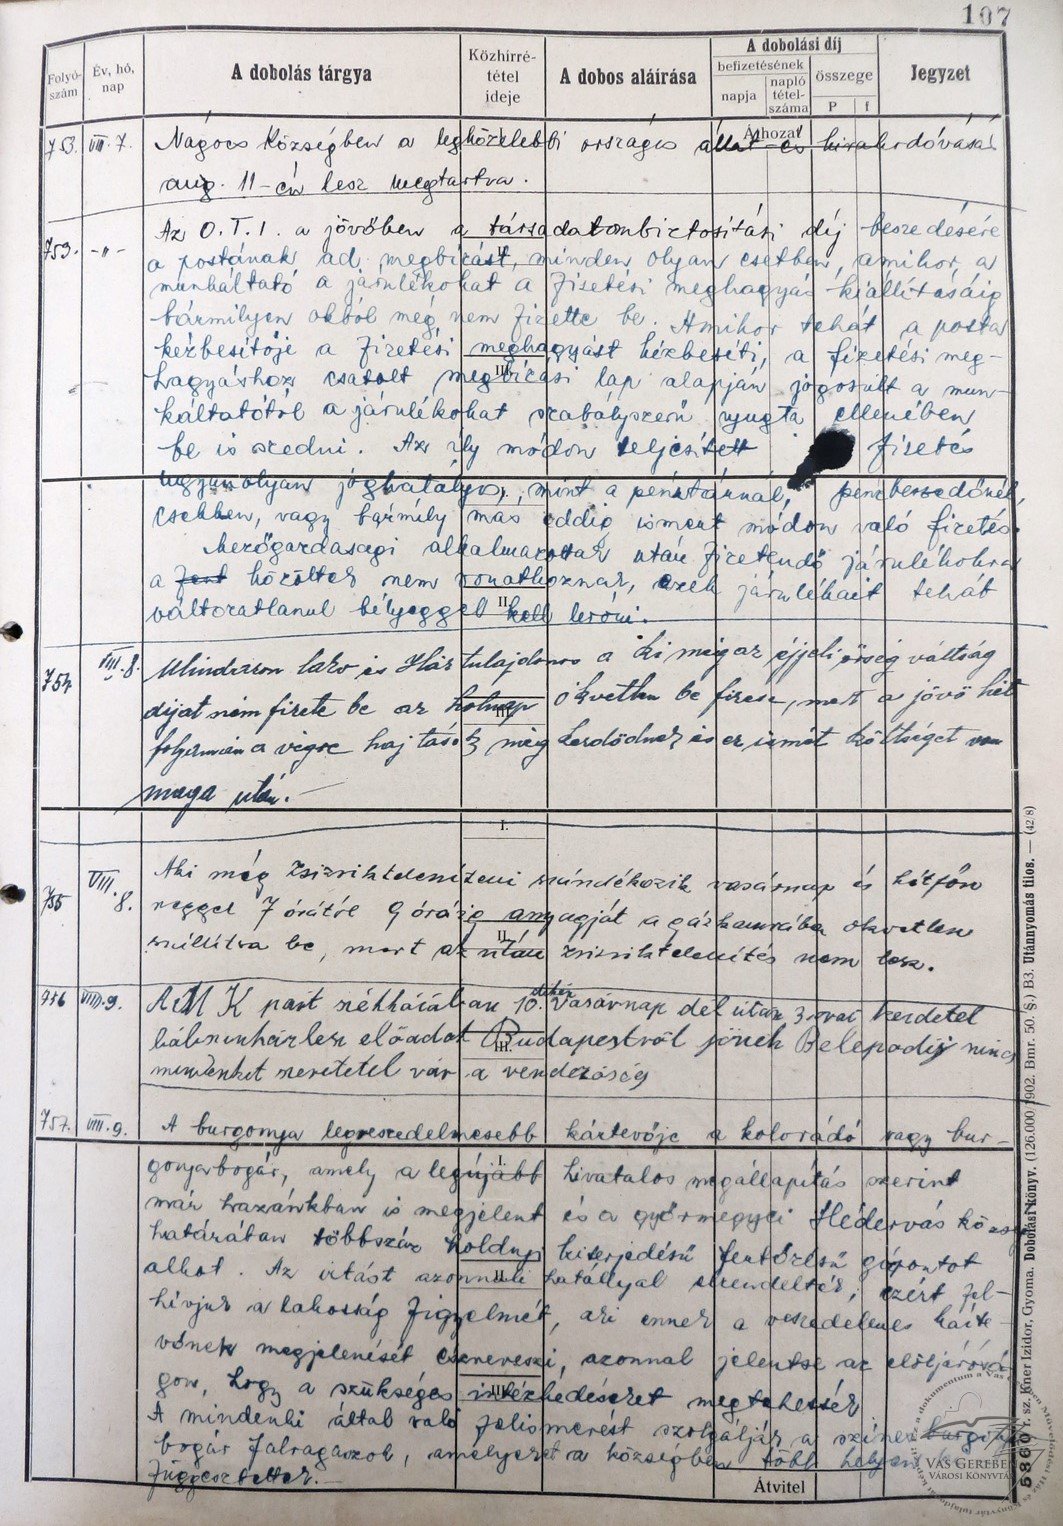 107
Folyó-szám
Év, hó, nap
A dobolás tárgya
Közhírré-tétel ideje
A dobos aláírása
A dobolási díj
befizetésének
napja
napló tétel-száma
összege
P f
Jegyzet
Áthozat
753. VIII. 7. Nágocs községben a legközelebbi országos állat- és kirakodóvásár
aug. 11-én lesz megtartva.
753. -"- Az O.T.I. a jövőben a társadalombiztosítási díj beszedésére
a postának ad megbízást, minden olyan esetben, amikor a
munkáltató a járulékokat a fizetési meghagyás kiállításáig
bármilyen okból még nem fizette be. Amikor tehát a posta
kézbesítője a fizetési meghagyást kézbesíti, a fizetési meg-
hagyáshoz csatolt megbízási lap alapján jogosult a mun-
káltatótól a járulékokat szabályszerű nyugta ellenében
be is szedni. Az ily módon teljesített fizetés
ugyanolyan joghatályú, mint a pénztárnál, pénzbeszedőnél,
csekken, vagy bármily más eddig ismert módon való fizetés.
Mezőgazdasági alkalmazottak után fizetendő járulékokra
a fent közöltek nem vonatkoznak, ezek járulékait tehát
változatlanul bélyeggel kell leróni.
754 VIII. 8. Mindazon lakó és Ház tulajdonos a ki még az éjjeli őrség váltság
díjat nem fizete be az holnap okvetlen be fizese, mert a jövő hét
folyamán a végre hajtások meg kezdődnek és ez ismét költséget von
maga után.
I.
755 VIII. 8. Aki még zsizsikteleníteni szándékozik vasárnap és hétfőn
reggel 7 órától 9 óráig anyagját a gázkamrába okvetlen
szállítsa be, mert az után zsizsiktelenítés nem lesz.
II.
756 VIII. 9. A M K párt székházában 10.-kén Vasárnap dél után 3 órai kezdetel
bábszínházlesz előadot Budapestről jönek Belépodíj nincs
mindenkit szeretetel vár a vendezőség
III.
757. VIII. 9. A burgonya legveszedelmesebb kártevője a kolorádó vagy bur-
gonyabogár, amely a legújabb hivatalos megállapítás szerint
már hazánkban is megjelent és a győrmegyei Hédervár község
határában többszáz holdnyi kiterjedésű fertőzésű gócpontot
alkot. Az irtást azonnali hatállyal elrendelték, ezért fel-
hívjuk a lakosság figyelmét, aki ennek a veszedelmes kárte-
vőnek megjelenését észreveszi, azonnal jelentse az elöljárósá-
gon, hogy a szükséges intézkedéseket megtehessék
A mindenki által való felismerést szolgálják a színes burgonya
bogár falragaszok, amelyeket a községben több helyen
függesztettek.
Átvitel
5860 r. sz. Kner Izidor, Gyoma. Dobolási könyv. (126.000/1902. Bmr. 50. §.) B3. Utánnyomás tilos. — (42/8)
VAS GEREBEN
VÁROSI KÖNYVTÁR